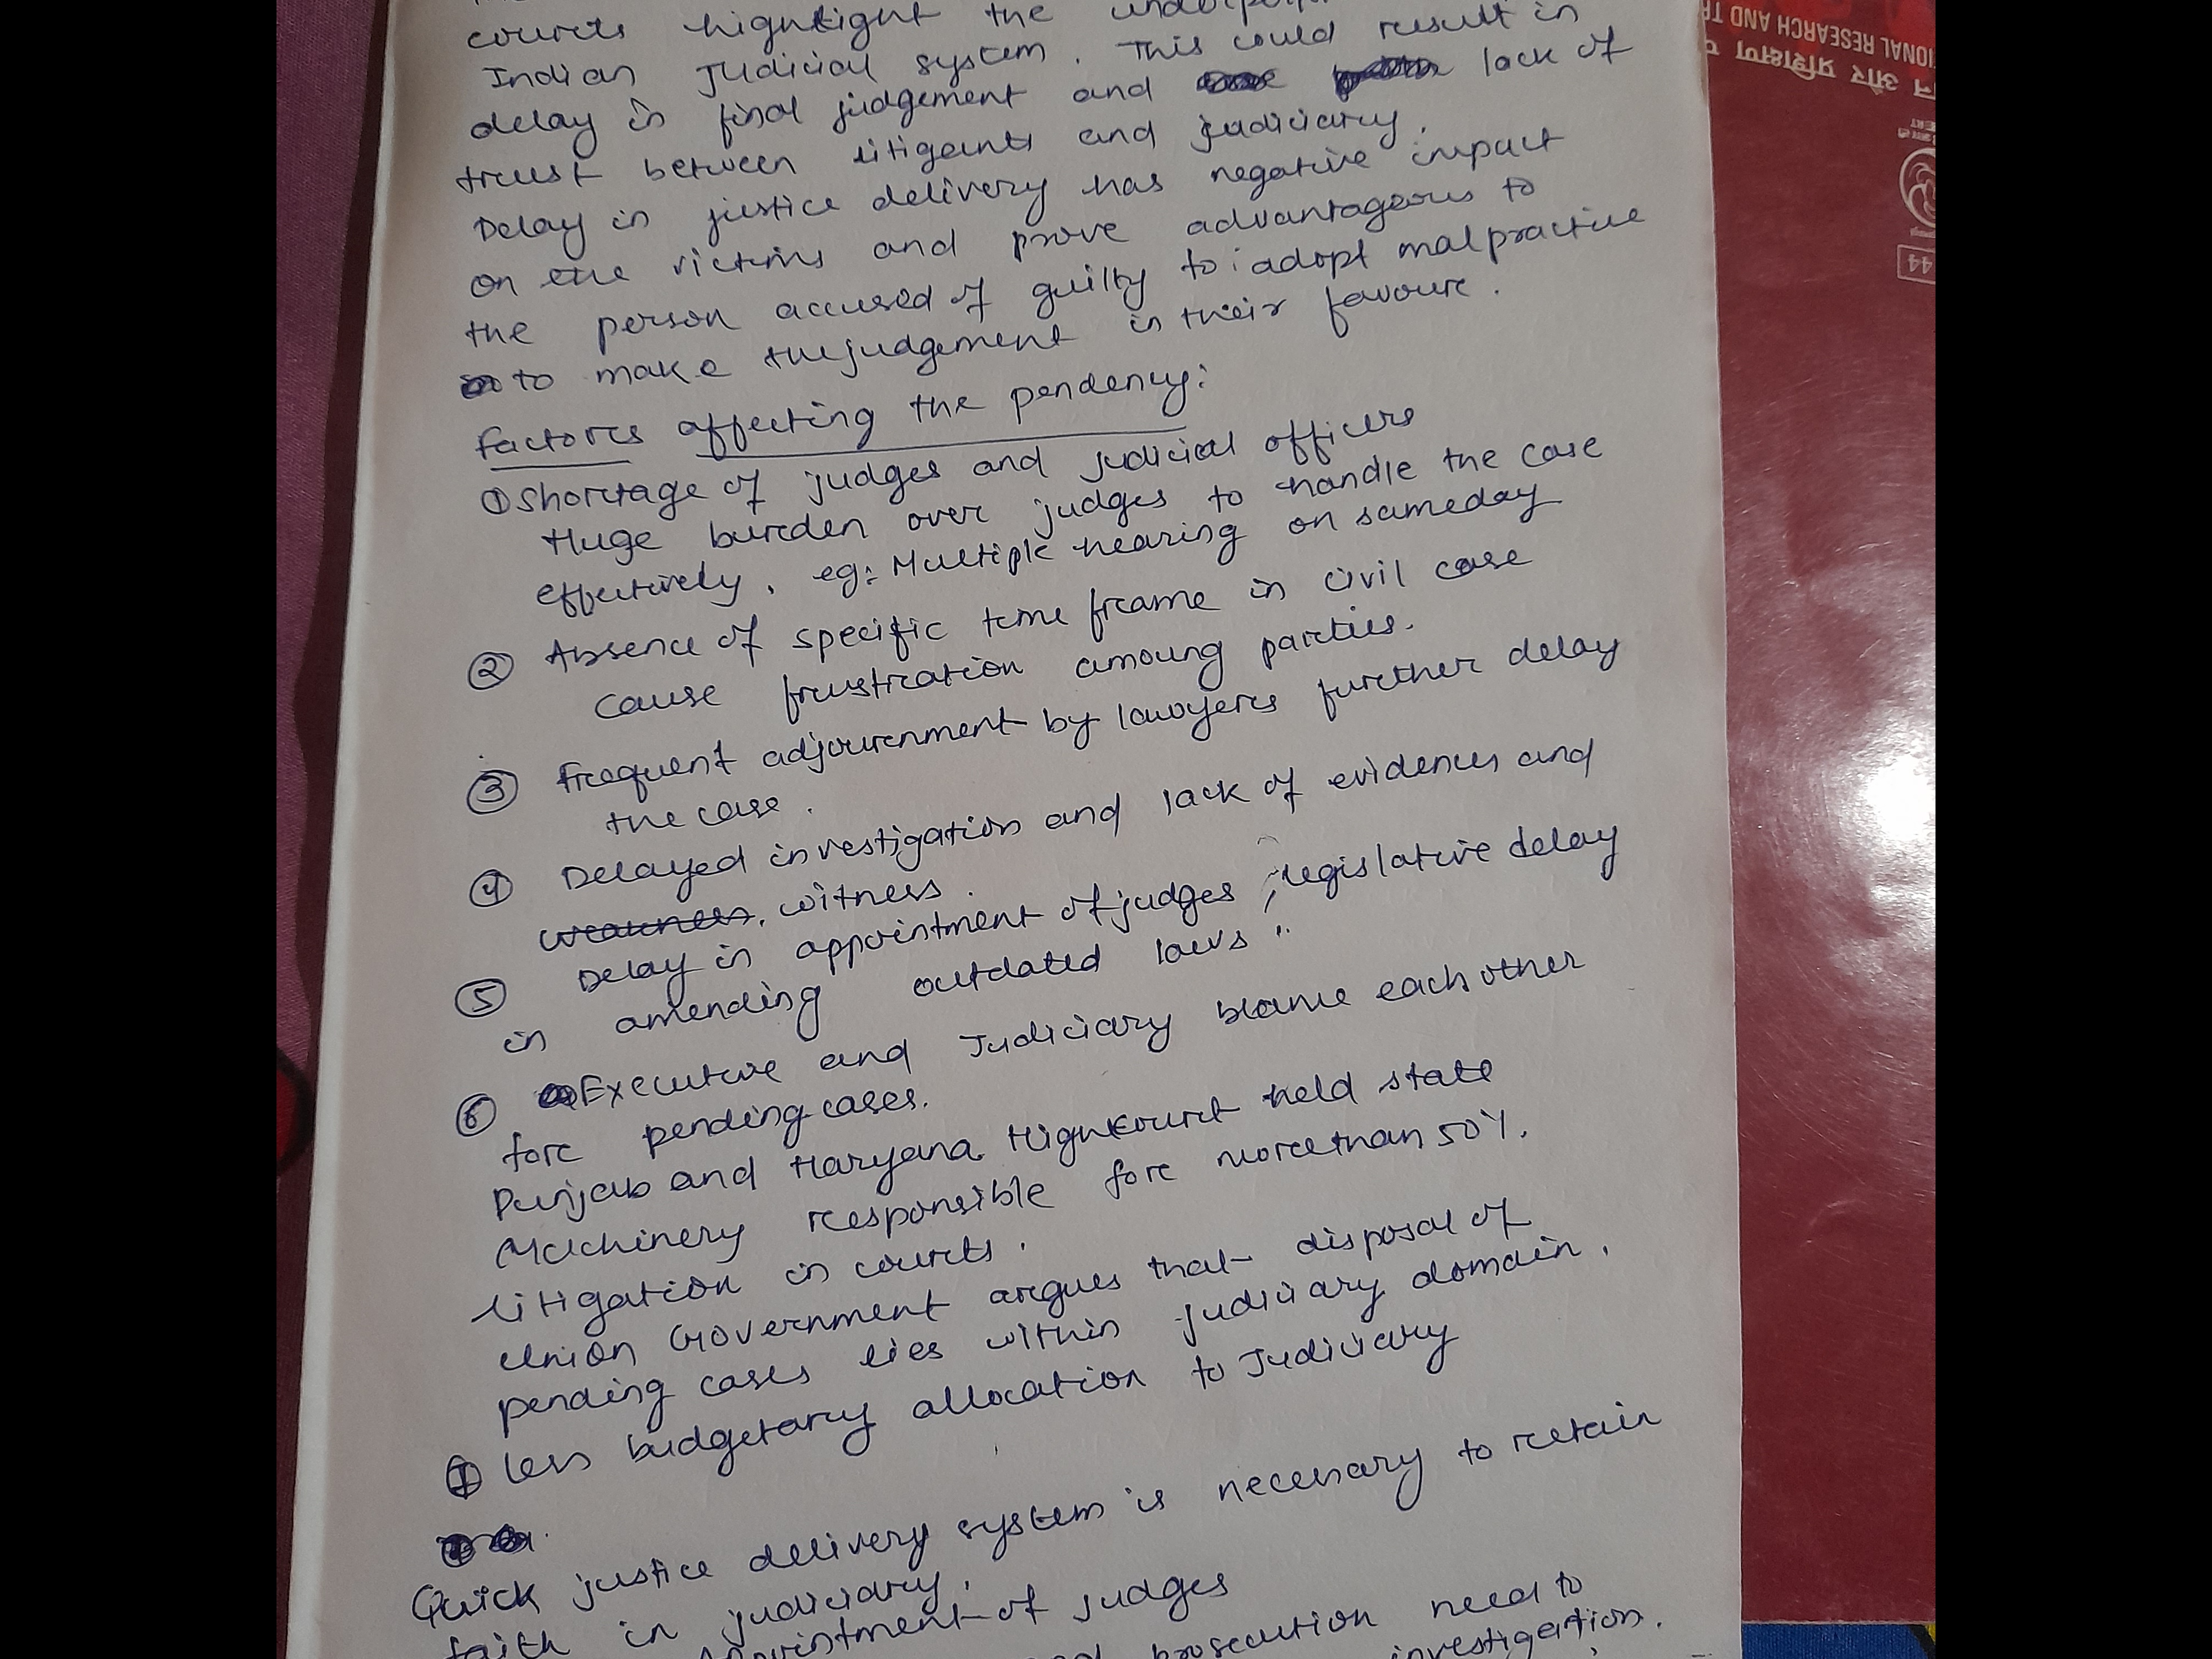 courts highlight the
Indian Judicial system. This could result in
delay in final judgement and lack of
trust between litigants and judiciary.
Delay in justice delivery has negative impact
on the victims and prove advantageous to
the person accused of guilty to adopt malpractice
to make the judgement in their favour.
Factors affecting the pendency:
① Shortage of judges and judicial officers
Huge burden over judges to handle the case
effectively. eg: Multiple hearing on sameday
② Absence of specific time frame in civil case
cause frustration amoung parties.
③ Frequent adjournment by lawyers further delay
the case.
④ Delayed investigation and lack of evidences and
witness.
⑤ Delay in appointment of judges, legislative delay
in amending outdated laws..
⑥ Executive and Judiciary blame each other
for pending cases.
Punjab and Haryana High Court held state
Machinery responsible for morethan 50%.
litigation in courts.
Union Government argues that disposal of
pending cases lies within judiciary domain.
⑦ less budgetary allocation to Judiciary
Quick justice delivery system is necessary to retain
faith in judiciary.
Appointment of judges
prosecution need to
investigation.
IONAL RESEARCH AND TR
और प्रशिक्षण प
44